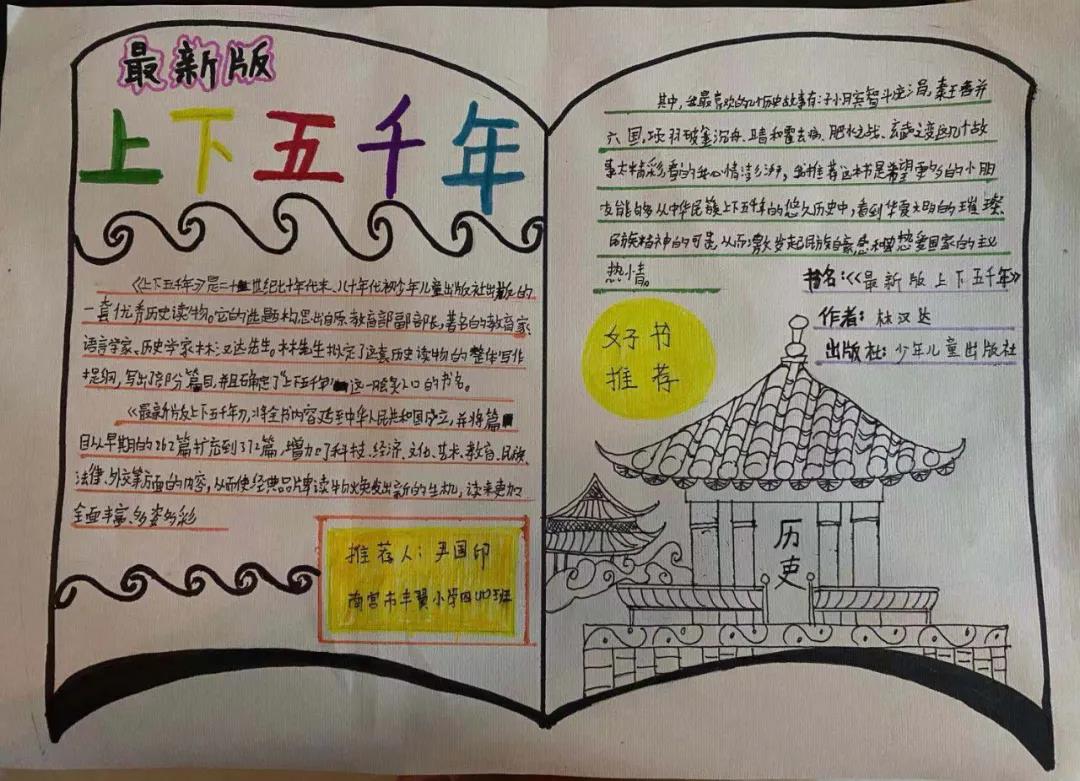 最新版
上下五千年
《上下五千年》是二十世纪七十年代末、八十年代初少年儿童出版社出版的
一套优秀历史读物。它的选题构思出自原教育部副部长,著名的教育家
语言学家、历史学家林汉达先生。林先生拟定了这套历史读物的整体写作
提纲,写出了部分篇目,并且确定了"上下五千年"这一脍炙人口的书名。
《最新版上下五千年》,将全书内容延至中华人民共和国成立,并将篇
目从早期的262篇扩充到312篇,增加了科技、经济、文化、艺术、教育、民族、
法律、外交等方面的内容,从而使经典品牌读物焕发出新的生机,读来更加
全面丰富、多姿多彩
推荐人:尹国印
南宫市丰翼小学四(4)班
其中,我最喜欢的历史故事有:孙膑智斗庞涓,秦王吞并
六国,项羽破釜沉舟、卫青和霍去病、肥水之战、玄武之变这几个故
事太精彩看的我心情澎湃,我推荐这本书是希望更多的小朋
友能够从中华民族上下五千年的悠久历史中,看到华夏文明的璀璨、
民族精神的可贵,从而激发起民族自豪感和热爱国家的
热情。
书名:《最新版上下五千年》
作者:林汉达
出版社:少年儿童出版社
好书
推荐
历
史